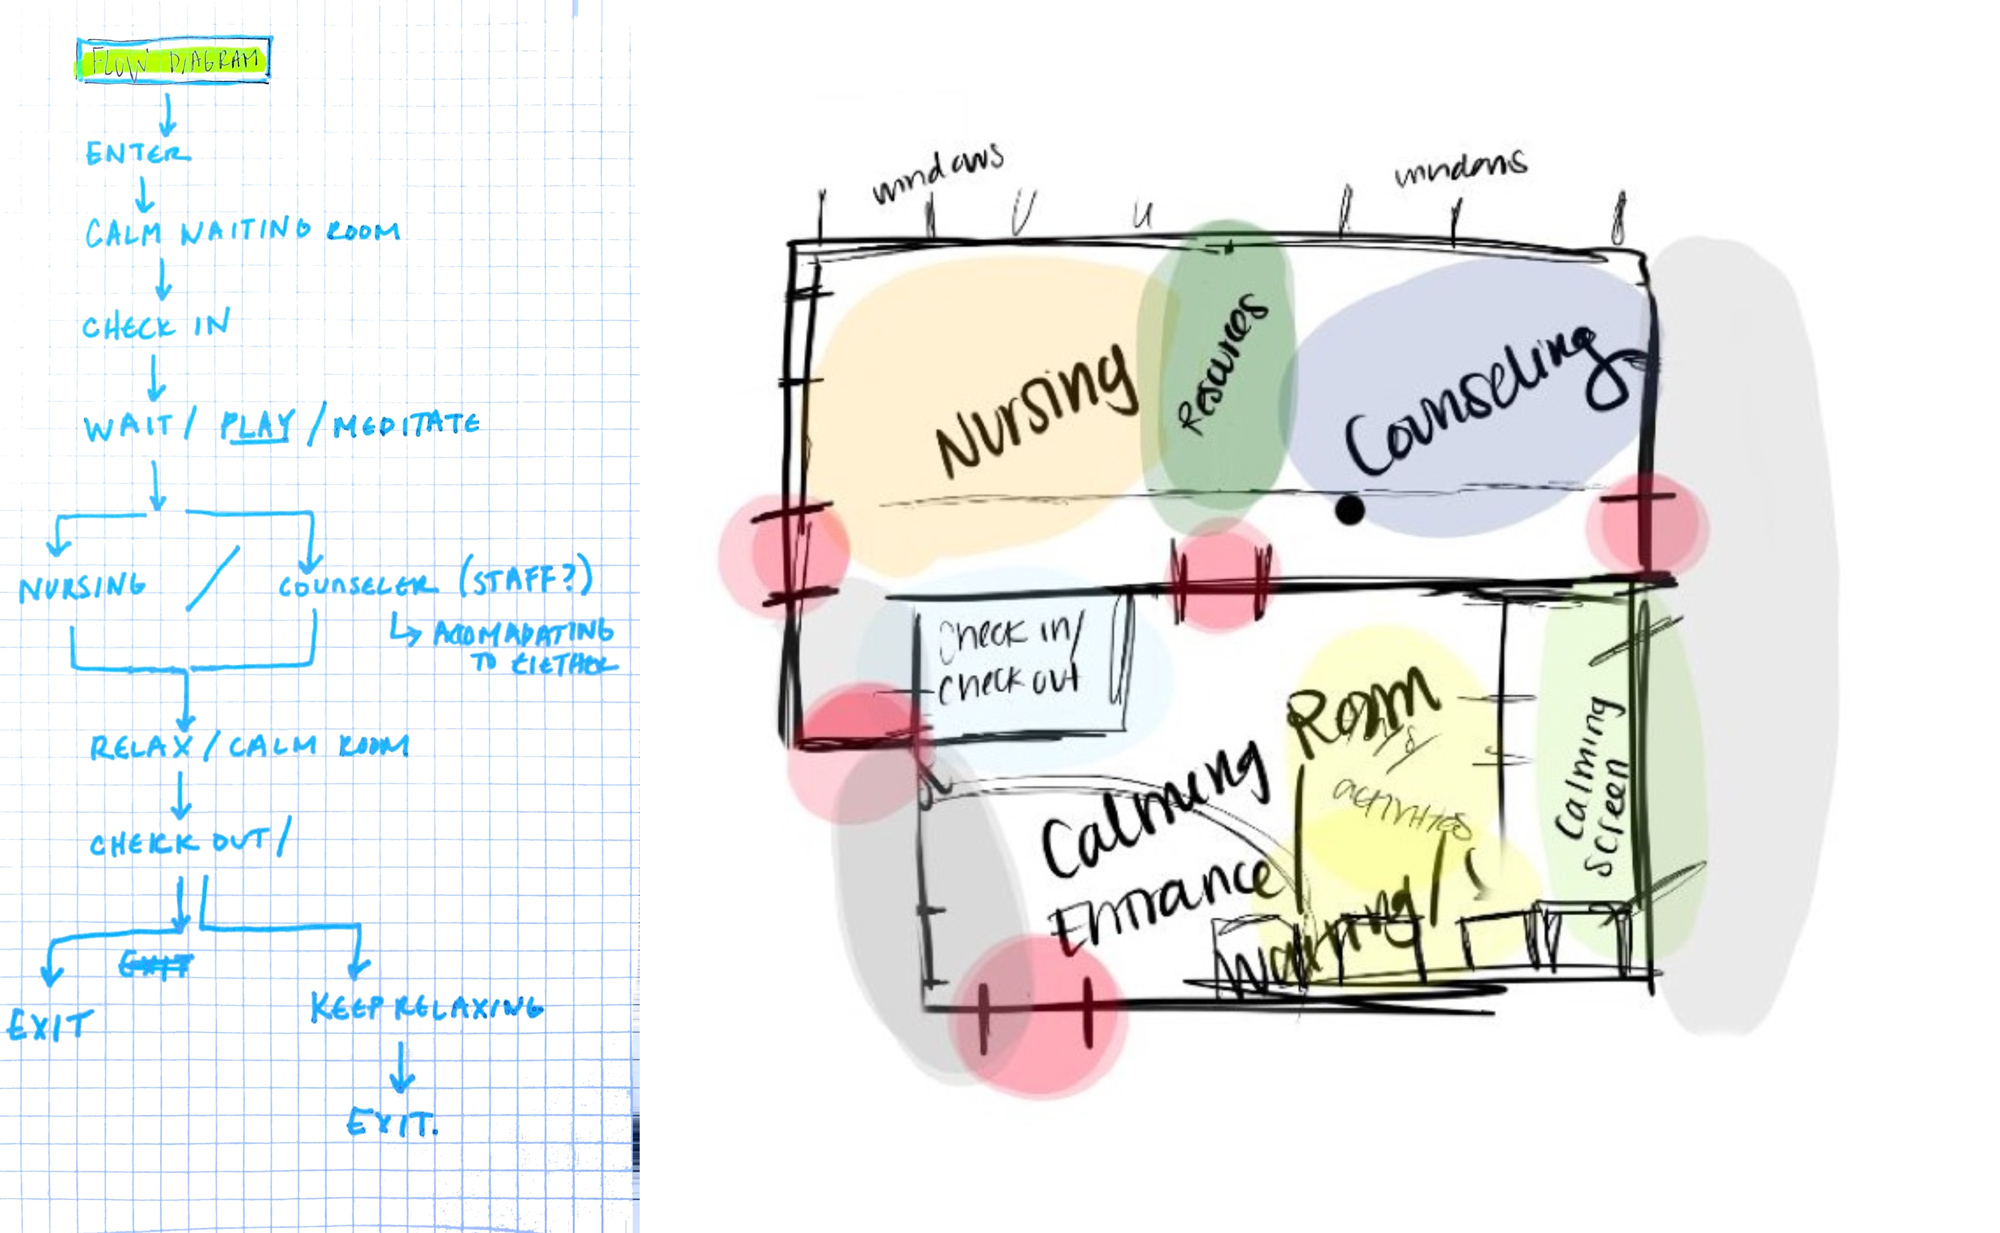 FLOW DIAGRAM
ENTER
CALM WAITING ROOM
CHECK IN
WAIT / PLAY / MEDITATE
NURSING / COUNSELER (STAFF?)
↳ ACOMADATING
TO EIETHER
RELAX / CALM ROOM
CHEKCK OUT /
EXIT
EXIT
KEEP RELAXING
EXIT.
windows
windows
Nursing
Resources
Counseling
Check in/
check out
Calming Room
activities
Calming
screen
Entrance
Waiting/